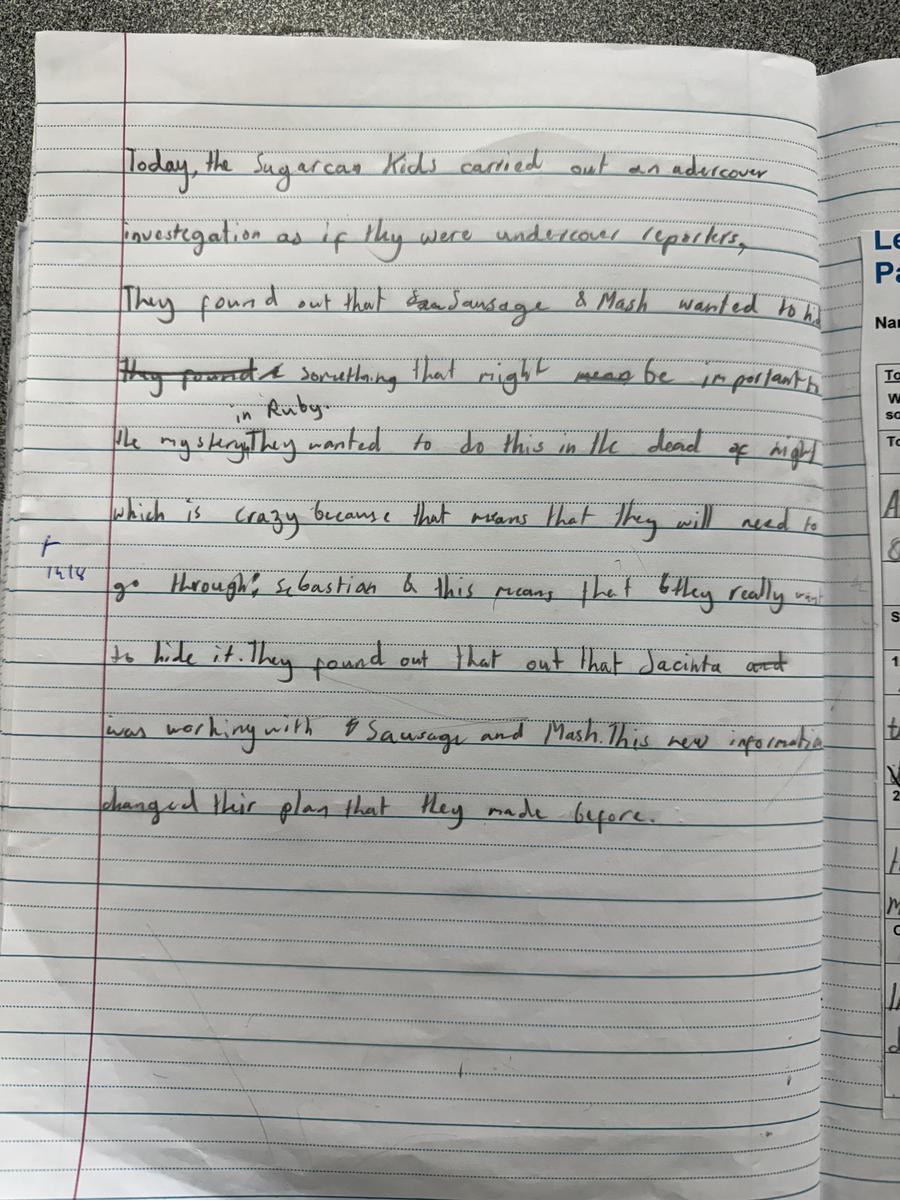 Today, the Sugarcan Kids carried out an adercover
investegation as if thy were undercover reporters,
They found out that Sausage & Mash wanted to hid
they found something that might be important to
in Ruby.
the mystery. They wanted to do this in the dead of night
which is crazy because that means that they will need to
go through Sebastian & this means that they really want
to hide it. They found out that out that Jacinta and
was working with Sausage and Mash. This new informatio
changed thir plan that they made before.
14/8
Le
Pa
Nar
To
W
so
To
A
8
S
1
2